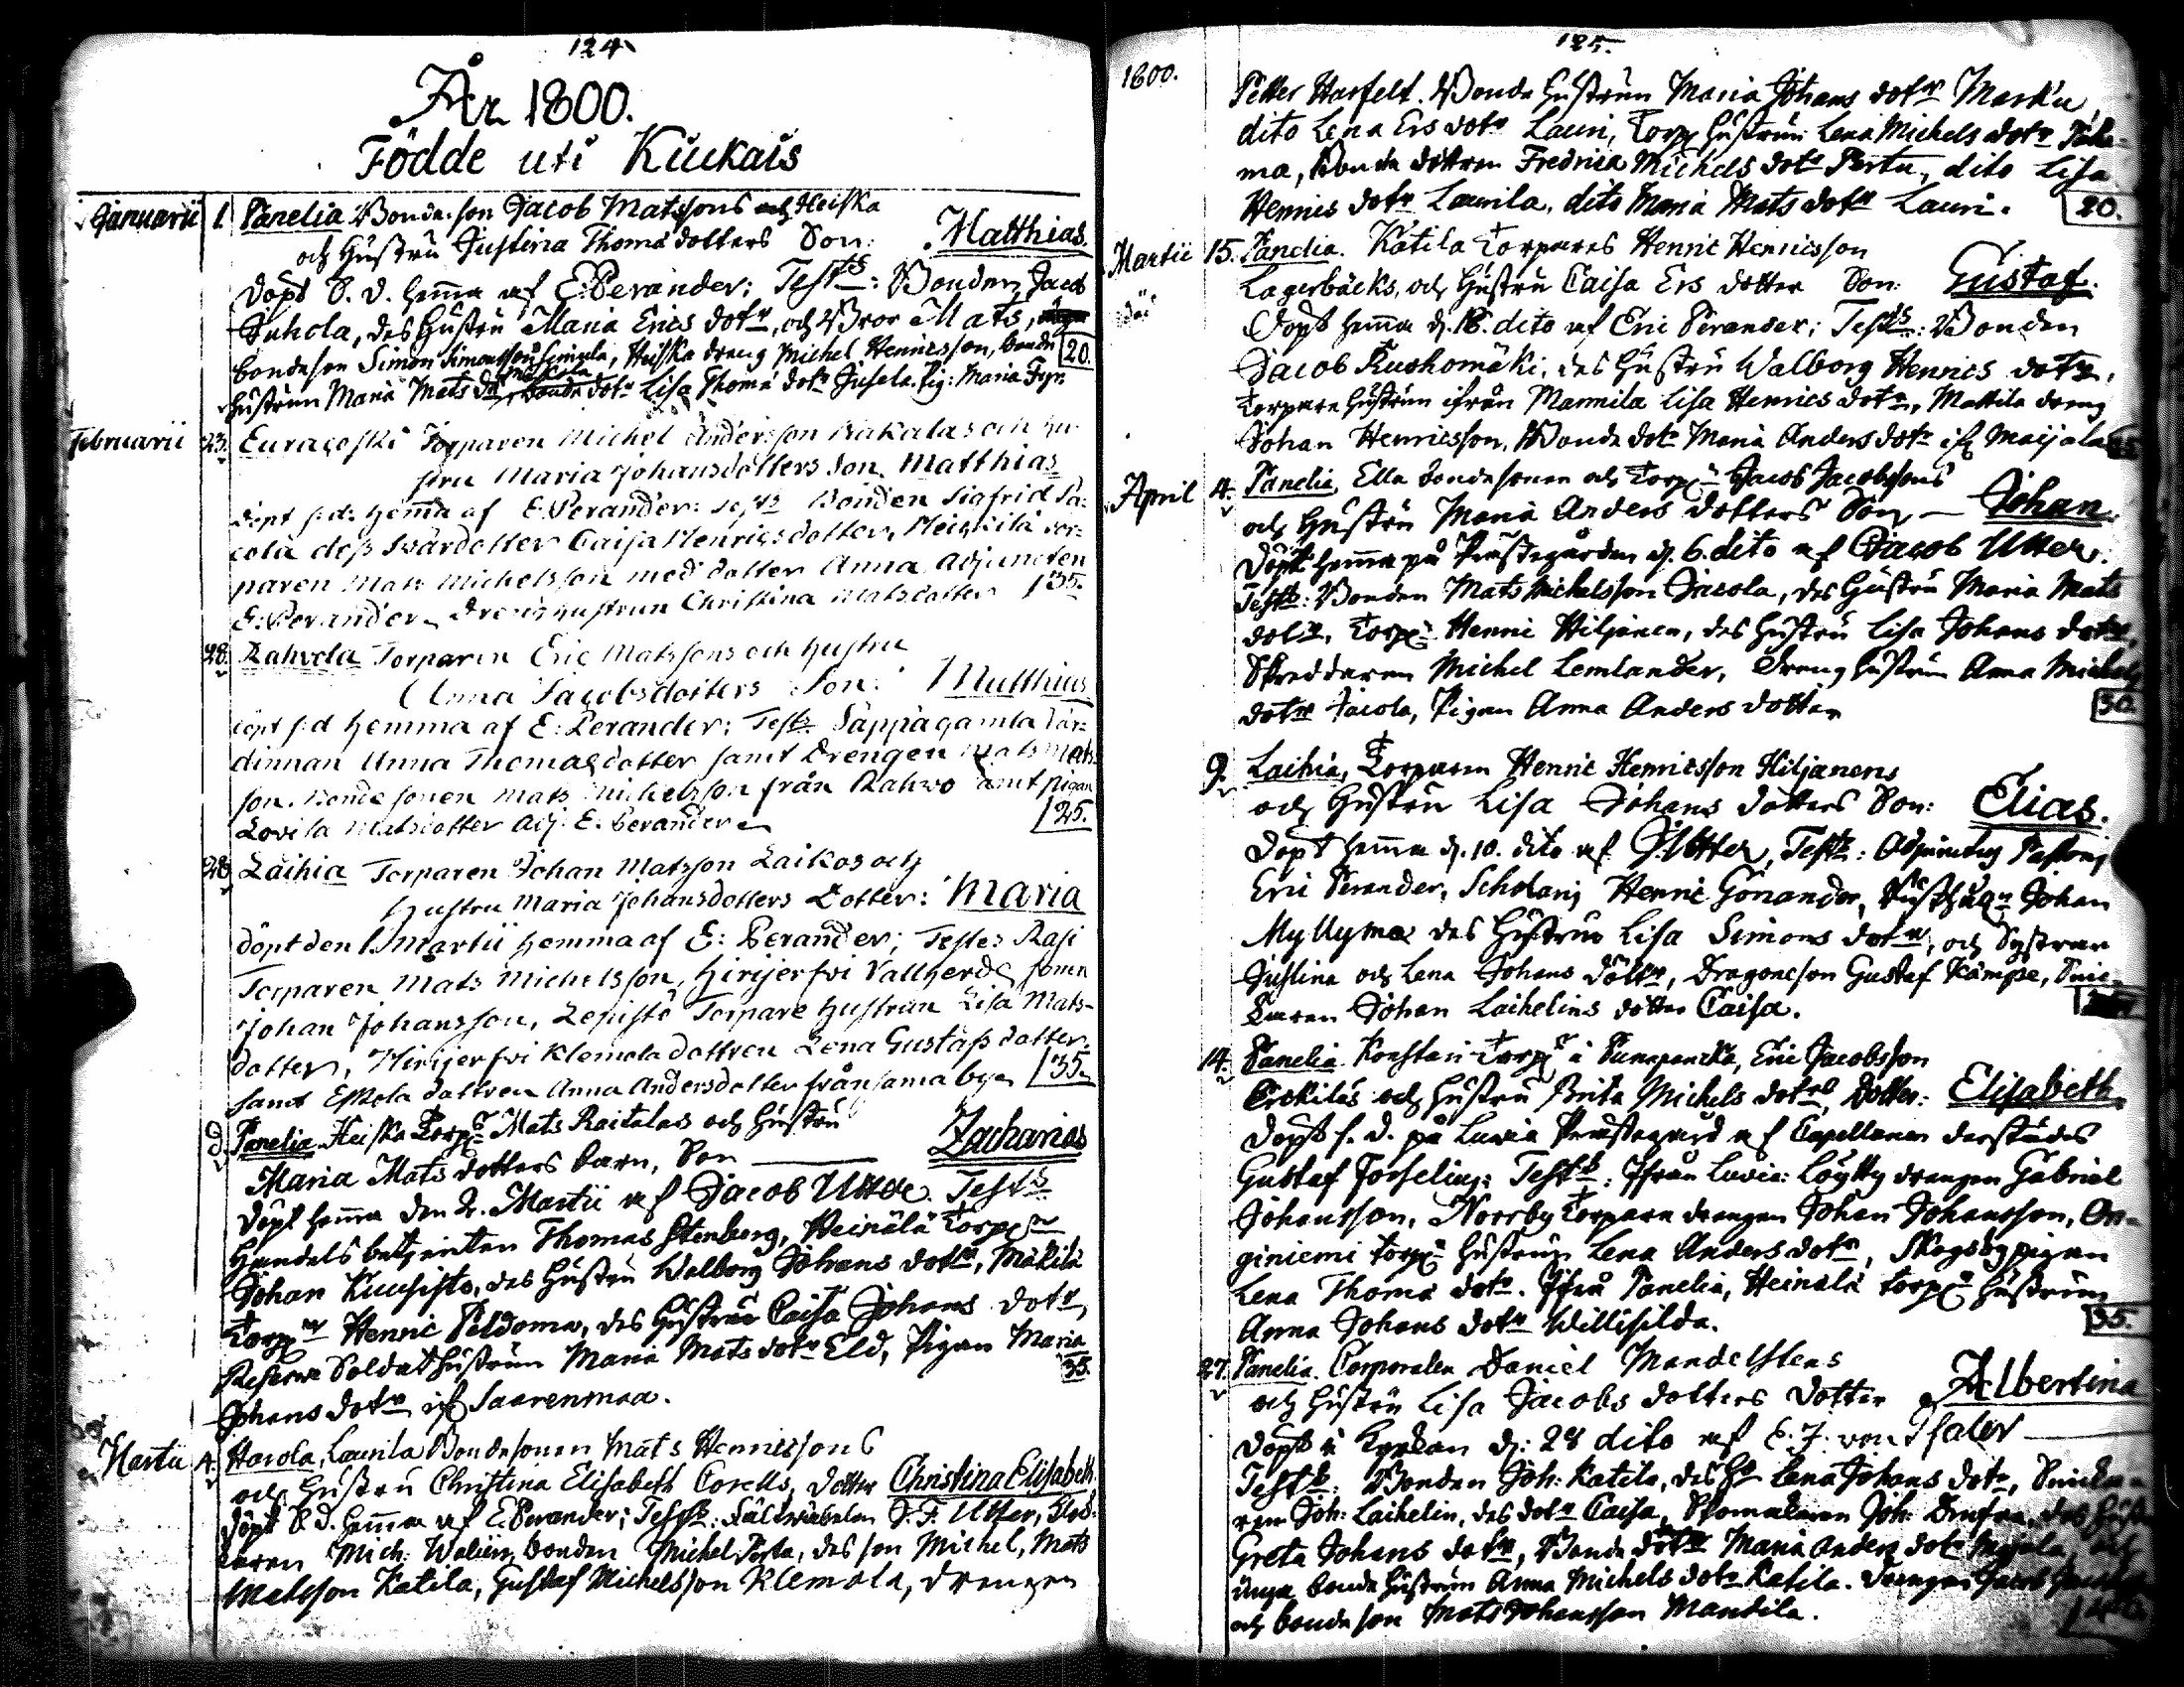 124
År 1800.
Födde uti Kiukais
Januarii 1. Panelia Bondeson Jacob Matssons och Heiska
och Hustru Justina Thomædotters Son: Matthias.
Döpt S. D. hemma af E: Perander; Testes: Bonden Jacob
Juhola, des Hustru Maria Erics dotr, och Bror Mats,
bondeson Simon Simonsson Simula, Heiska dreng Michel Henricsson, bonde 20.
hustrun Maria Mats dotr dotr Lisa Thomæ dotr Jusela. Pig: Maria
Februarii 23. Euracoski Torparen Michel Andersson Rakalas och hu-
stru Maria Johansdotters Son Matthias
döpt s: d: hemma af E: Perander: Bonden Sigfrid Pa-
cola dess Svärdotter Caisa Henricsdotter, Heickilä tor-
paren Mats Michelsson med dotter Anna Adjuncten
E: Perander, Drenghustrun Christina Matsdotter 35.
28. Rahvola Torparen Eric Matssons och hustru
Anna Jacobsdotters Son: Matthias
döpt s: d hemma af E: Perander: Test: Säppä gamla Vär-
dinnan Anna Thomasdotter samt Drengen Mats Mats-
son. Bonde sonen Mats Michelsson från Rahvo samt pigan
Lovisa Matsdotter Adj. E. Perander 25.
28 Laihia Torparen Johan Matsson Laikos och
Hustru Maria Johansdotters Dotter: Maria
döpt den 1 Martii hemma af E: Perander; Testes Rasi
Torparen Mats Michelsson, Hirijerfvi Vallherde sonen
Johan Johansson, Lepistö Torpare hustrun Lisa Mats-
dotter, Hirijerfvi Klemola dottren Lena Gustafs dotter
samt Eskola dottren Anna Andersdotter från sama by 35.
d. Panelia Heiska Torpr Mats Raitalas och Hustru
Maria Mats dotters barn, Son Zacharias
Döpt hemma den 2. Martii af Jacob Utter. Tests
Handels betjenten Thomas Stenberg, Heinälä Torpr
Johan Kuusisto, des Hustru Walborg Johans dotr, Mäkilä
Torpr Henric Peldoma, des Hustru Caisa Johans dotr,
Reserve Soldat hustrun Maria Mats dotr Eld, Pigan Maria
Johans dotr ifr Saarenmaa. 35.
Martii 4. Harola, Laurila Bondesonen Mats Henricssons
och Hustru Christina Elisabeth Corells, Dotter Christina Elisabeth.
Döpt S. D. hemma af E Perander; Test: Fältväbelen J. F. Utter, Klock-
aren Mich: Welin, bonden Michel Perttu, des son Michel, Mats
Matsson Katila, Gustaf Michelsson Klemola, Drengen
125.
1800.
Petter Harfelt. Bonde hustrun Maria Johans dotr Marku
dito Lena Ers dotr Lauri, Torp hustrun Lena Michels dotr
ma, Bonde döttren Fredrica Michels dotr Perttu, dito Lisa
Henrics dotr Laurila, dito Maria Mats dotr Lauri. 20.
Martii 15. Panelia. Katila Torparens Henric Henricsson
Lagerbäcks, och Hustru Caisa Ers dotter Son: Gustaf.
Döpt hemma d. 16. dito af Eric Perander; Tests: Bonden
Jacob Ruohomäki, des Hustru Walborg Henrics dotr,
Torpare hustrun ifrån Mannila Lisa Henrics dotr, Mattila dreng
Johan Henricsson, Bonde dotr Maria Anders dotr ifr Maijala
April 4. Panelia, Ella Bondesonen och Torpr Jacob Jacobssons
och Hustru Maria Anders dotters Son Johan.
Döpt hemma på Prästegården d. 6. dito af Jacob Utter.
Tests: Bonden Mats Michelsson Jacola, des Hustru Maria Mats
dotr, Torpr Henric Hiljanen, des Hustru Lisa Johans dotr,
Skreddaren Michel Lemlander, Dreng hustrun Anna Michels
dotr Jacola, Pigan Anna Anders dotter 30
9. Laihia, Torparen Henric Henricsson Hiljanens
och Hustru Lisa Johans dotters Son: Elias.
Döpt hemma d. 10. dito af J. Utter, Tests: Adjunctus Pastoris
Eric Perander, Scholaris Henric Gonander, Johan
Myllymaa des Hustru Lisa Simons dotr, och Systrar
Justina och Lena Johans döttr, Dragoneson Gustaf Kämpe, Snic-
karen Johan Laihelins dotter Caisa.
14. Panelia Konstari Torpr i Eric Jacobsson
Erckiläs och Hustru Brita Michels dotrs, Dotter: Elisabeth
Döpt s. d. på Luvia Prästegård af Capellanen därstädes
Gustaf Forselius; Test: Ifrån Luvia: Löytty drengen Gabriel
Johansson, Norrby Torpare drengen Johan Johansson, On-
giniemi torpr hustrun Lena Anders dotr, Skogsby pigan
Lena Thomæ dotr. Ifrå Panelia, Heinälä torpr hustrun
Anna Johans dotr Willisilda. 35.
27. Panelia. Corporalen Daniel Mandelstens
och Hustru Lisa Jacobs dotters Dotter Albertina
Döpt i Kyrkan d: 28 dito af E: J. von Pfaler
Test: Bonden Joh: Katila, des H Lena Johans dotr, Snicka-
ren Joh: Laihelin, des dotr Caisa, Skomakaren Joh:
Greta Johans dotr, Bonde dotr Maria Anders dotr och
unga bonde hustrun Anna Michels dotr Katila. Drengen Jacob
och bonde son Mats Johansson Mandila.